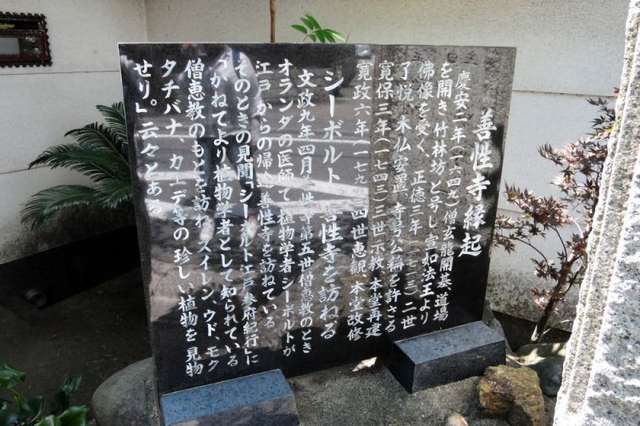 善性寺縁起
慶安二年(一六四九)僧玄龍開基、道場
を開き竹林坊と号し宣如法王より
佛像を受く、正徳三年(一七一三)二世
了悦 木仏 安置 寺号公称を許さる
寛保三年(一七四三)三世示教本堂再建
寛政六年(一七九四)四世恵観 本堂改修
シーボルト 善性寺を訪ねる
文政九年四月 当寺第五世僧恵教のとき
オランダの医師で植物学者シーボルトが
江戸からの帰途善性寺を訪ねている
そのときの見聞「シーボルト江戸参府紀行」に
「かねてより植物学者として知られている
僧恵教のもとを訪ね スイレン、ウド、モク
タチバナ カ デ等の珍しい植物を見物
せり。」云々とある